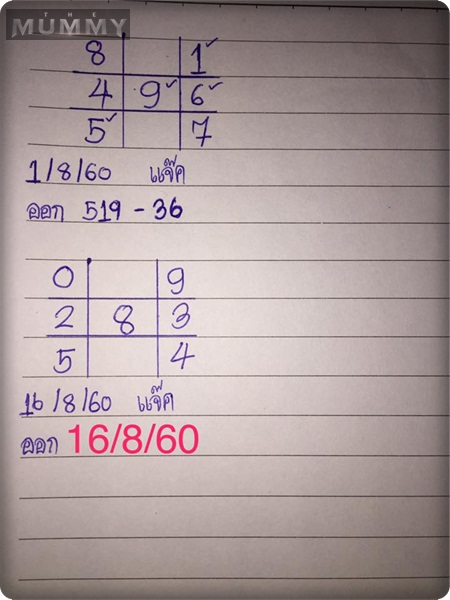 THE
MUMMY
8 1✓
4 9✓ 6✓
5✓ 7
1/8/60 แจ๊ค
ออก 519 - 36
0 9
2 8 3
5 4
16/8/60 แจ๊ค
ออก 16/8/60